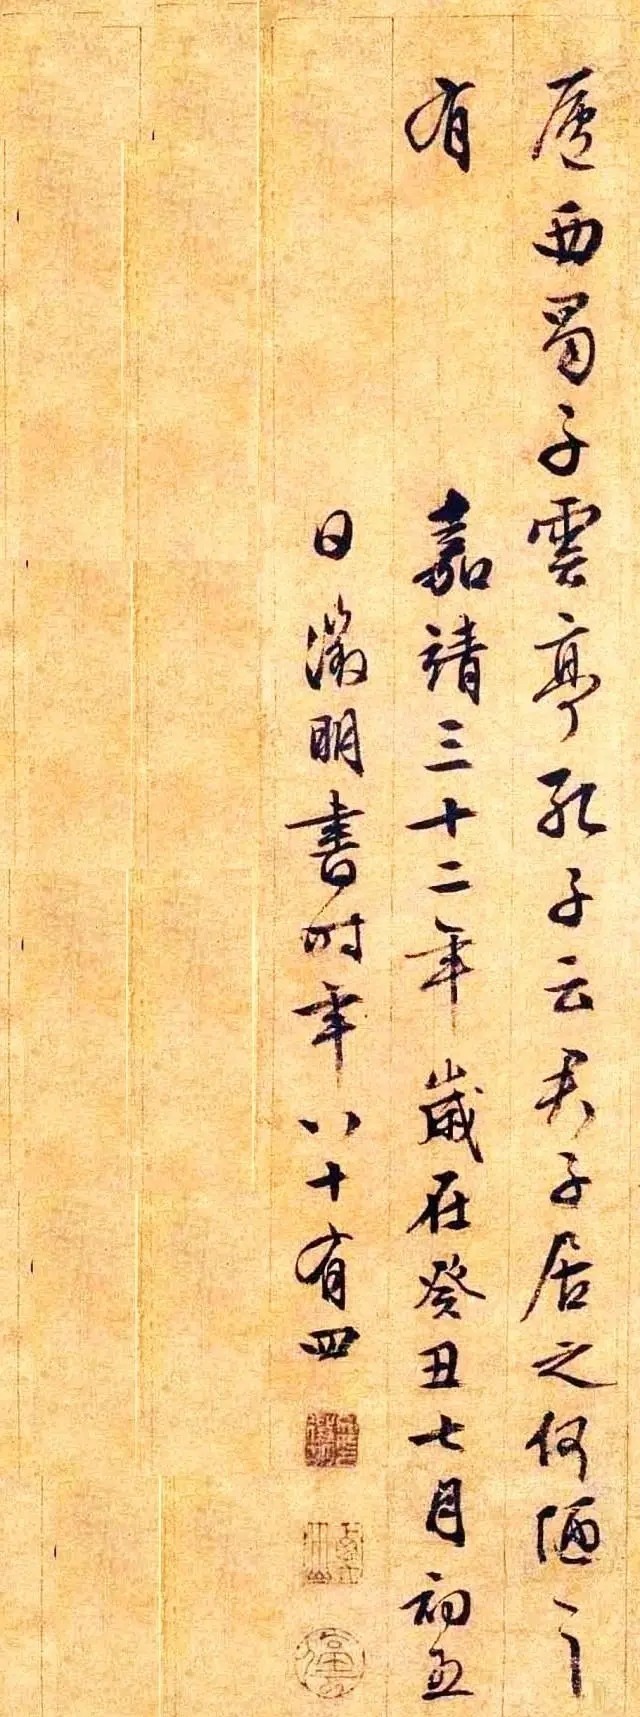 廬西蜀子雲亭孔子云君子居之何陋之
有　嘉靖三十二年歲在癸丑七月初五
日徵明書時年八十有四